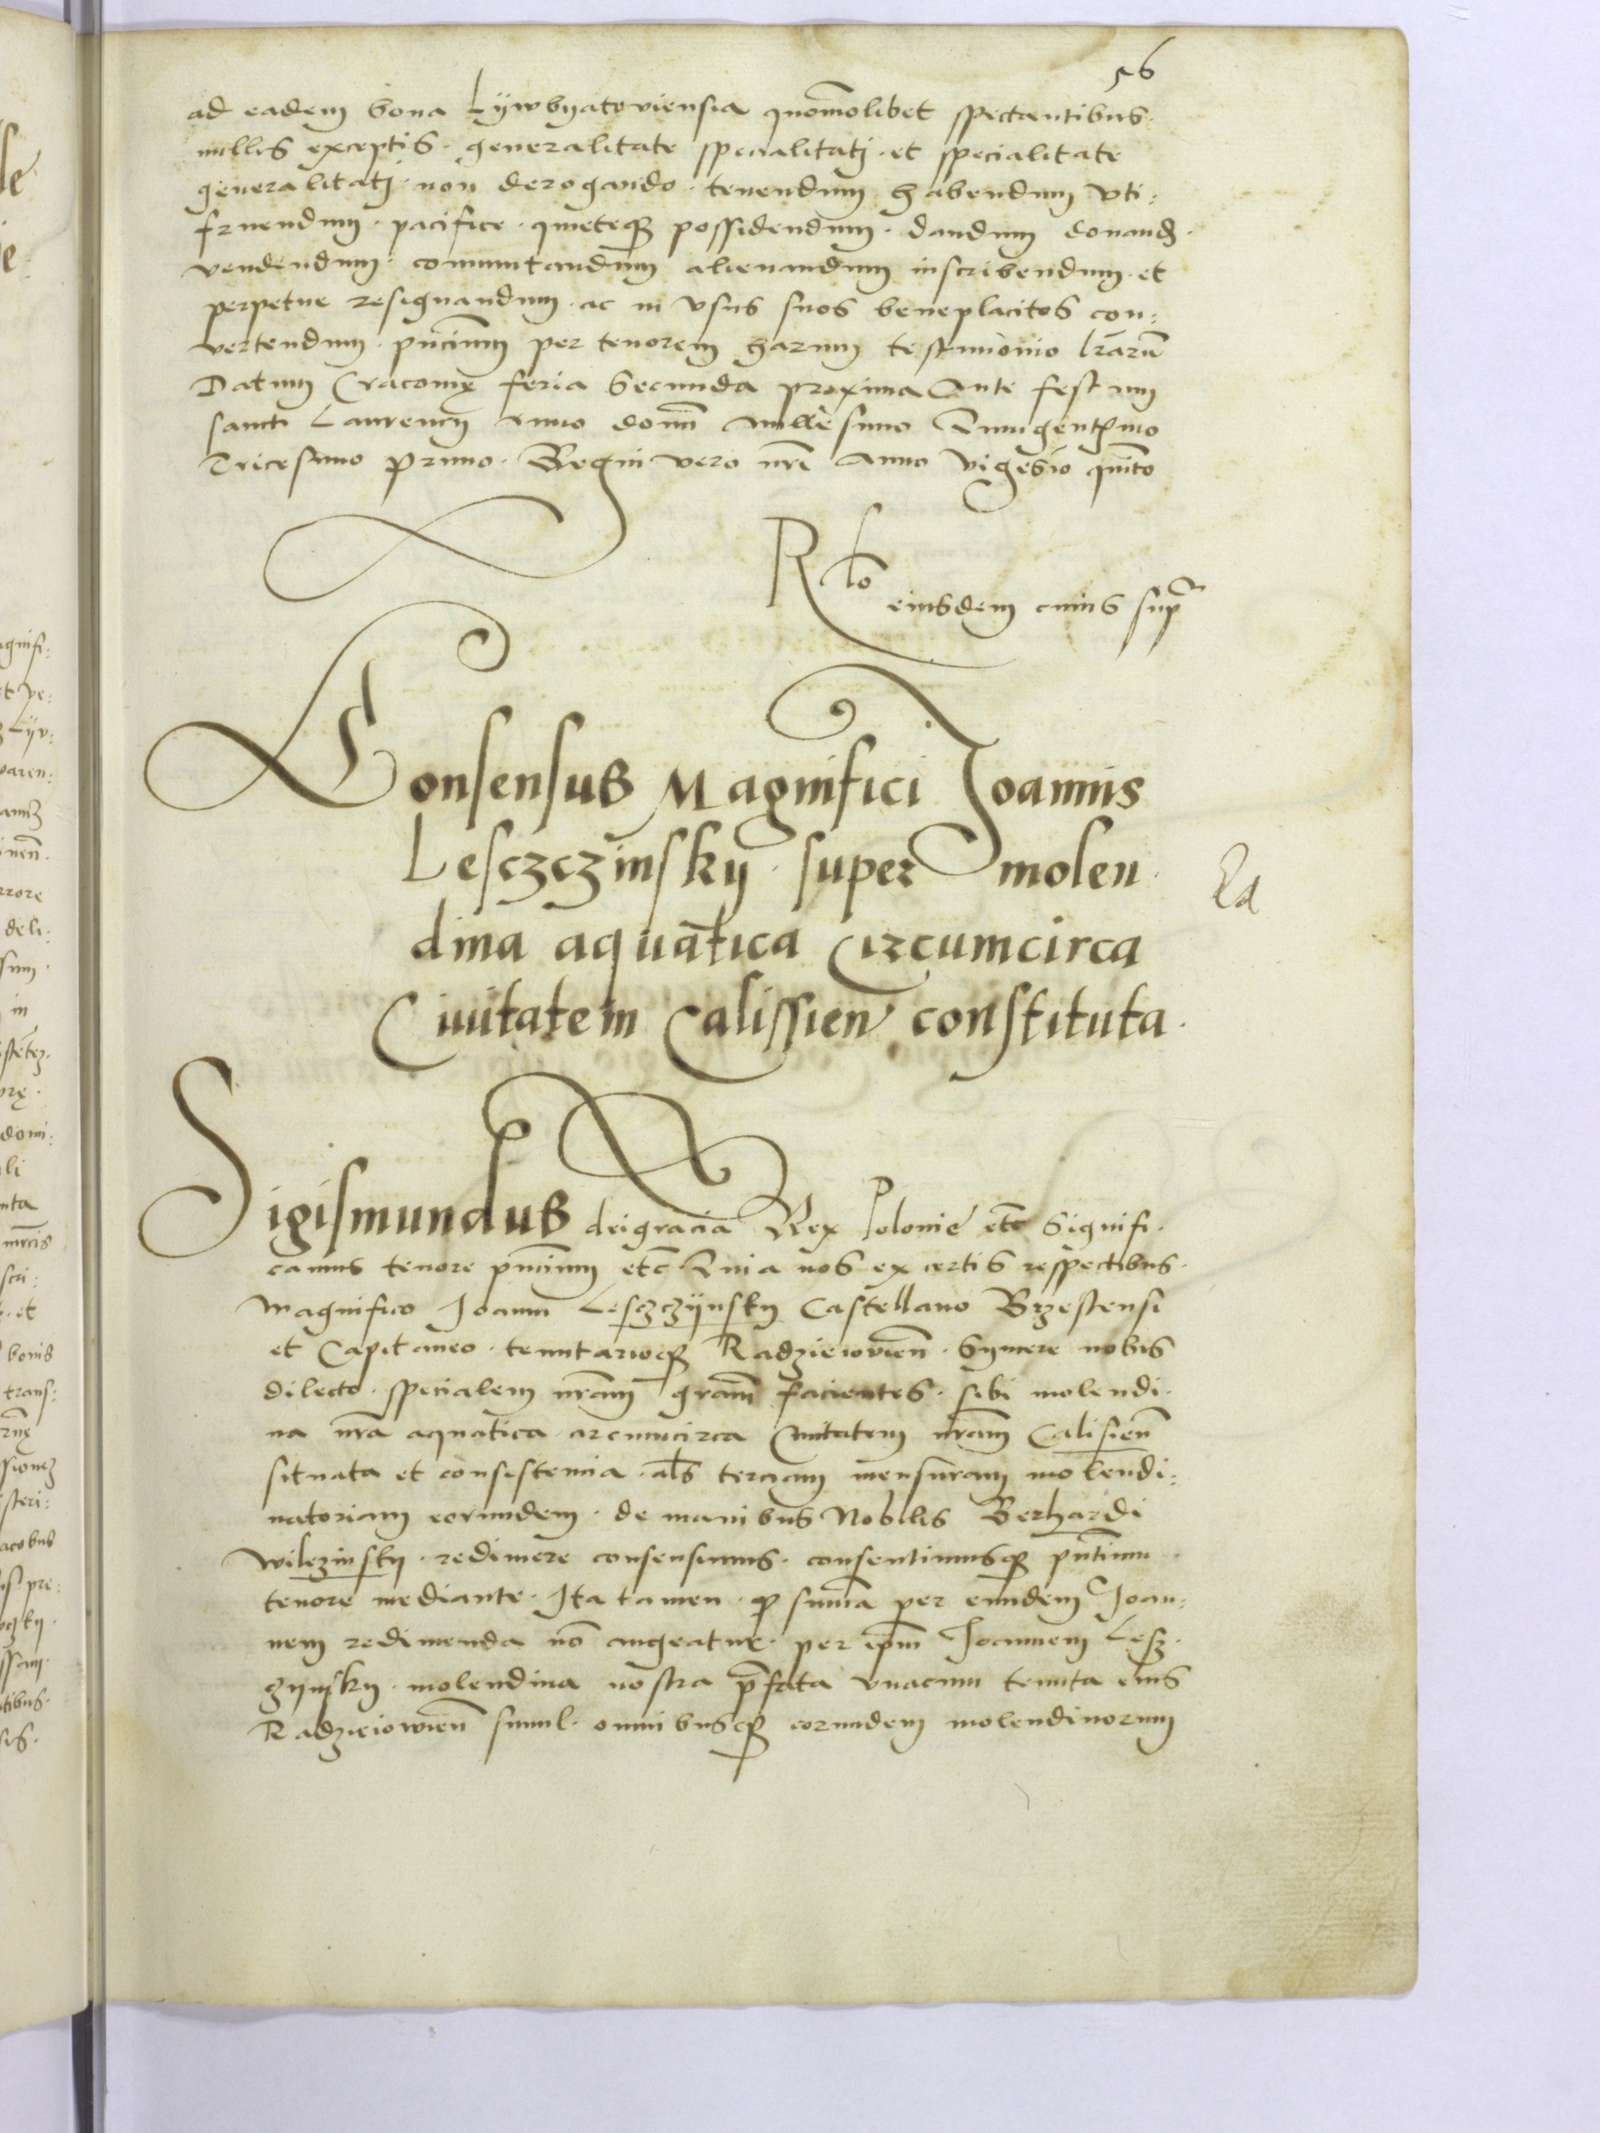 56
ad eadem bona Lywbyatoviensia quomolibet spectantibus.
nullis exceptis. generalitate specialitatj. et specialitate
generalitatj. non derogando. tenendum habendum vti:
fruendum. pacifice. quieteq possidendum. dandum donand.
vendendum. comutandum alienandum inscribendum. et
perpetue resignandum. ac in vsus suos beneplacitos con:
vertendum. pncium per tenorem harum testimonio lrarū
Datum Cracovię feria secunda proxima Ante festum
sancti Laurencij Anno domi Millesimo Quingentmo
Tricesimo Primo. Regni vero nri Anno vigesio quito
Rlo
eiusdem cuius sup
Consensus Magnifici Joannis
Lesczczinskÿ. super molen.
dina aquatica Circumcirca
Civitatem Calissien constituta.
Ra
Sigismundus deigracia Rex Polonie etc Signifi.
camus tenore pncium etc. Quia nos ex certis respectibus.
Magnifico Joanni Lesczczÿnskÿ Castellano Brzestensi
et Capitaneo. tenutarioq Radzieiovien. Syncere nobis
dilecto. specialem nram gram facientes. sibi molendi.
na nra aquatica. circumcirca Civitatem nram Calisien
situata et consistencia. als terciam mensuram molendi:
natoriam eorundem. de manibus Nobilis Berhardi
Wilczinskÿ. redimere consensimus. consentimusq pntium
tenore mediante. Ita tamen. q suma per eundem Joan:
nem redimenda no augeatur. per ipm Joannem Lesz.
zÿnskÿ. molendina nostra pfata vnacum tenuta eius
Radzieiowien simul. omnibusq eorundem molendinorum